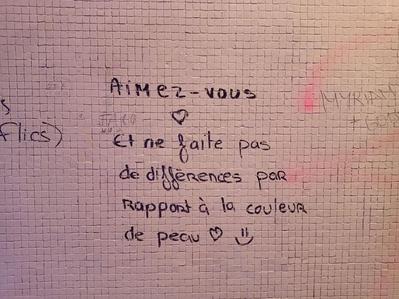 AiMEZ-VOUS
♡
Et ne faite pas
de différences par
RAPPORT à la couleur
de peau ♡ =)
flics)
MYRIAM